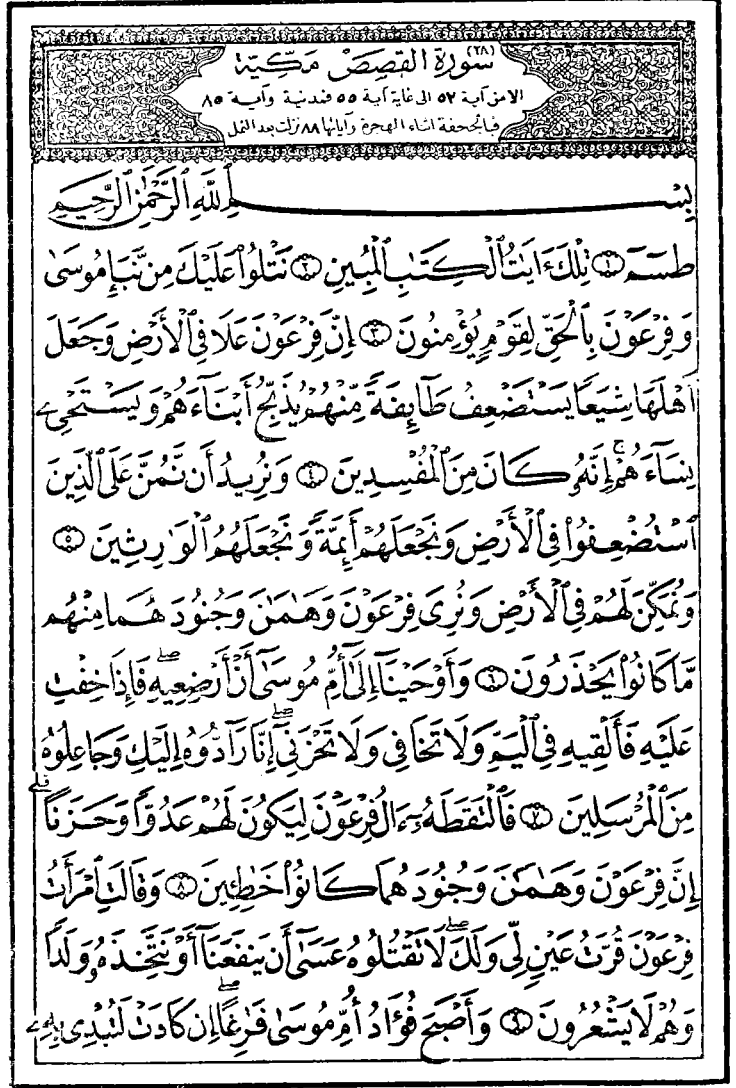 (٢٨) سورة القصص مكية
الا من آية ٥٢ الى غاية آية ٥٥ فمدنية وآية ٨٥
فبالجحفة اثناء الهجرة وآياتها ٨٨ نزلت بعد النمل
بِسْمِ ٱللَّهِ ٱلرَّحْمَٰنِ ٱلرَّحِيمِ
طسٓمٓ ۝١ تِلْكَ ءَايَٰتُ ٱلْكِتَٰبِ ٱلْمُبِينِ ۝٢ نَتْلُوا۟ عَلَيْكَ مِن نَّبَإِ مُوسَىٰ
وَفِرْعَوْنَ بِٱلْحَقِّ لِقَوْمٍ يُؤْمِنُونَ ۝٣ إِنَّ فِرْعَوْنَ عَلَا فِى ٱلْأَرْضِ وَجَعَلَ
أَهْلَهَا شِيَعًا يَسْتَضْعِفُ طَآئِفَةً مِّنْهُمْ يُذَبِّحُ أَبْنَآءَهُمْ وَيَسْتَحْىِۦ
نِسَآءَهُمْ ۚ إِنَّهُۥ كَانَ مِنَ ٱلْمُفْسِدِينَ ۝٤ وَنُرِيدُ أَن نَّمُنَّ عَلَى ٱلَّذِينَ
ٱسْتُضْعِفُوا۟ فِى ٱلْأَرْضِ وَنَجْعَلَهُمْ أَئِمَّةً وَنَجْعَلَهُمُ ٱلْوَٰرِثِينَ ۝٥
وَنُمَكِّنَ لَهُمْ فِى ٱلْأَرْضِ وَنُرِىَ فِرْعَوْنَ وَهَٰمَٰنَ وَجُنُودَهُمَا مِنْهُم
مَّا كَانُوا۟ يَحْذَرُونَ ۝٦ وَأَوْحَيْنَآ إِلَىٰٓ أُمِّ مُوسَىٰٓ أَنْ أَرْضِعِيهِ ۖ فَإِذَا خِفْتِ
عَلَيْهِ فَأَلْقِيهِ فِى ٱلْيَمِّ وَلَا تَخَافِى وَلَا تَحْزَنِىٓ ۖ إِنَّا رَآدُّوهُ إِلَيْكِ وَجَاعِلُوهُ
مِنَ ٱلْمُرْسَلِينَ ۝٧ فَٱلْتَقَطَهُۥٓ ءَالُ فِرْعَوْنَ لِيَكُونَ لَهُمْ عَدُوًّا وَحَزَنًا ۗ
إِنَّ فِرْعَوْنَ وَهَٰمَٰنَ وَجُنُودَهُمَا كَانُوا۟ خَٰطِـِٔينَ ۝٨ وَقَالَتِ ٱمْرَأَتُ
فِرْعَوْنَ قُرَّتُ عَيْنٍ لِّى وَلَكَ ۖ لَا تَقْتُلُوهُ عَسَىٰٓ أَن يَنفَعَنَآ أَوْ نَتَّخِذَهُۥ وَلَدًا
وَهُمْ لَا يَشْعُرُونَ ۝٩ وَأَصْبَحَ فُؤَادُ أُمِّ مُوسَىٰ فَٰرِغًا ۖ إِن كَادَتْ لَتُبْدِى بِهِۦ